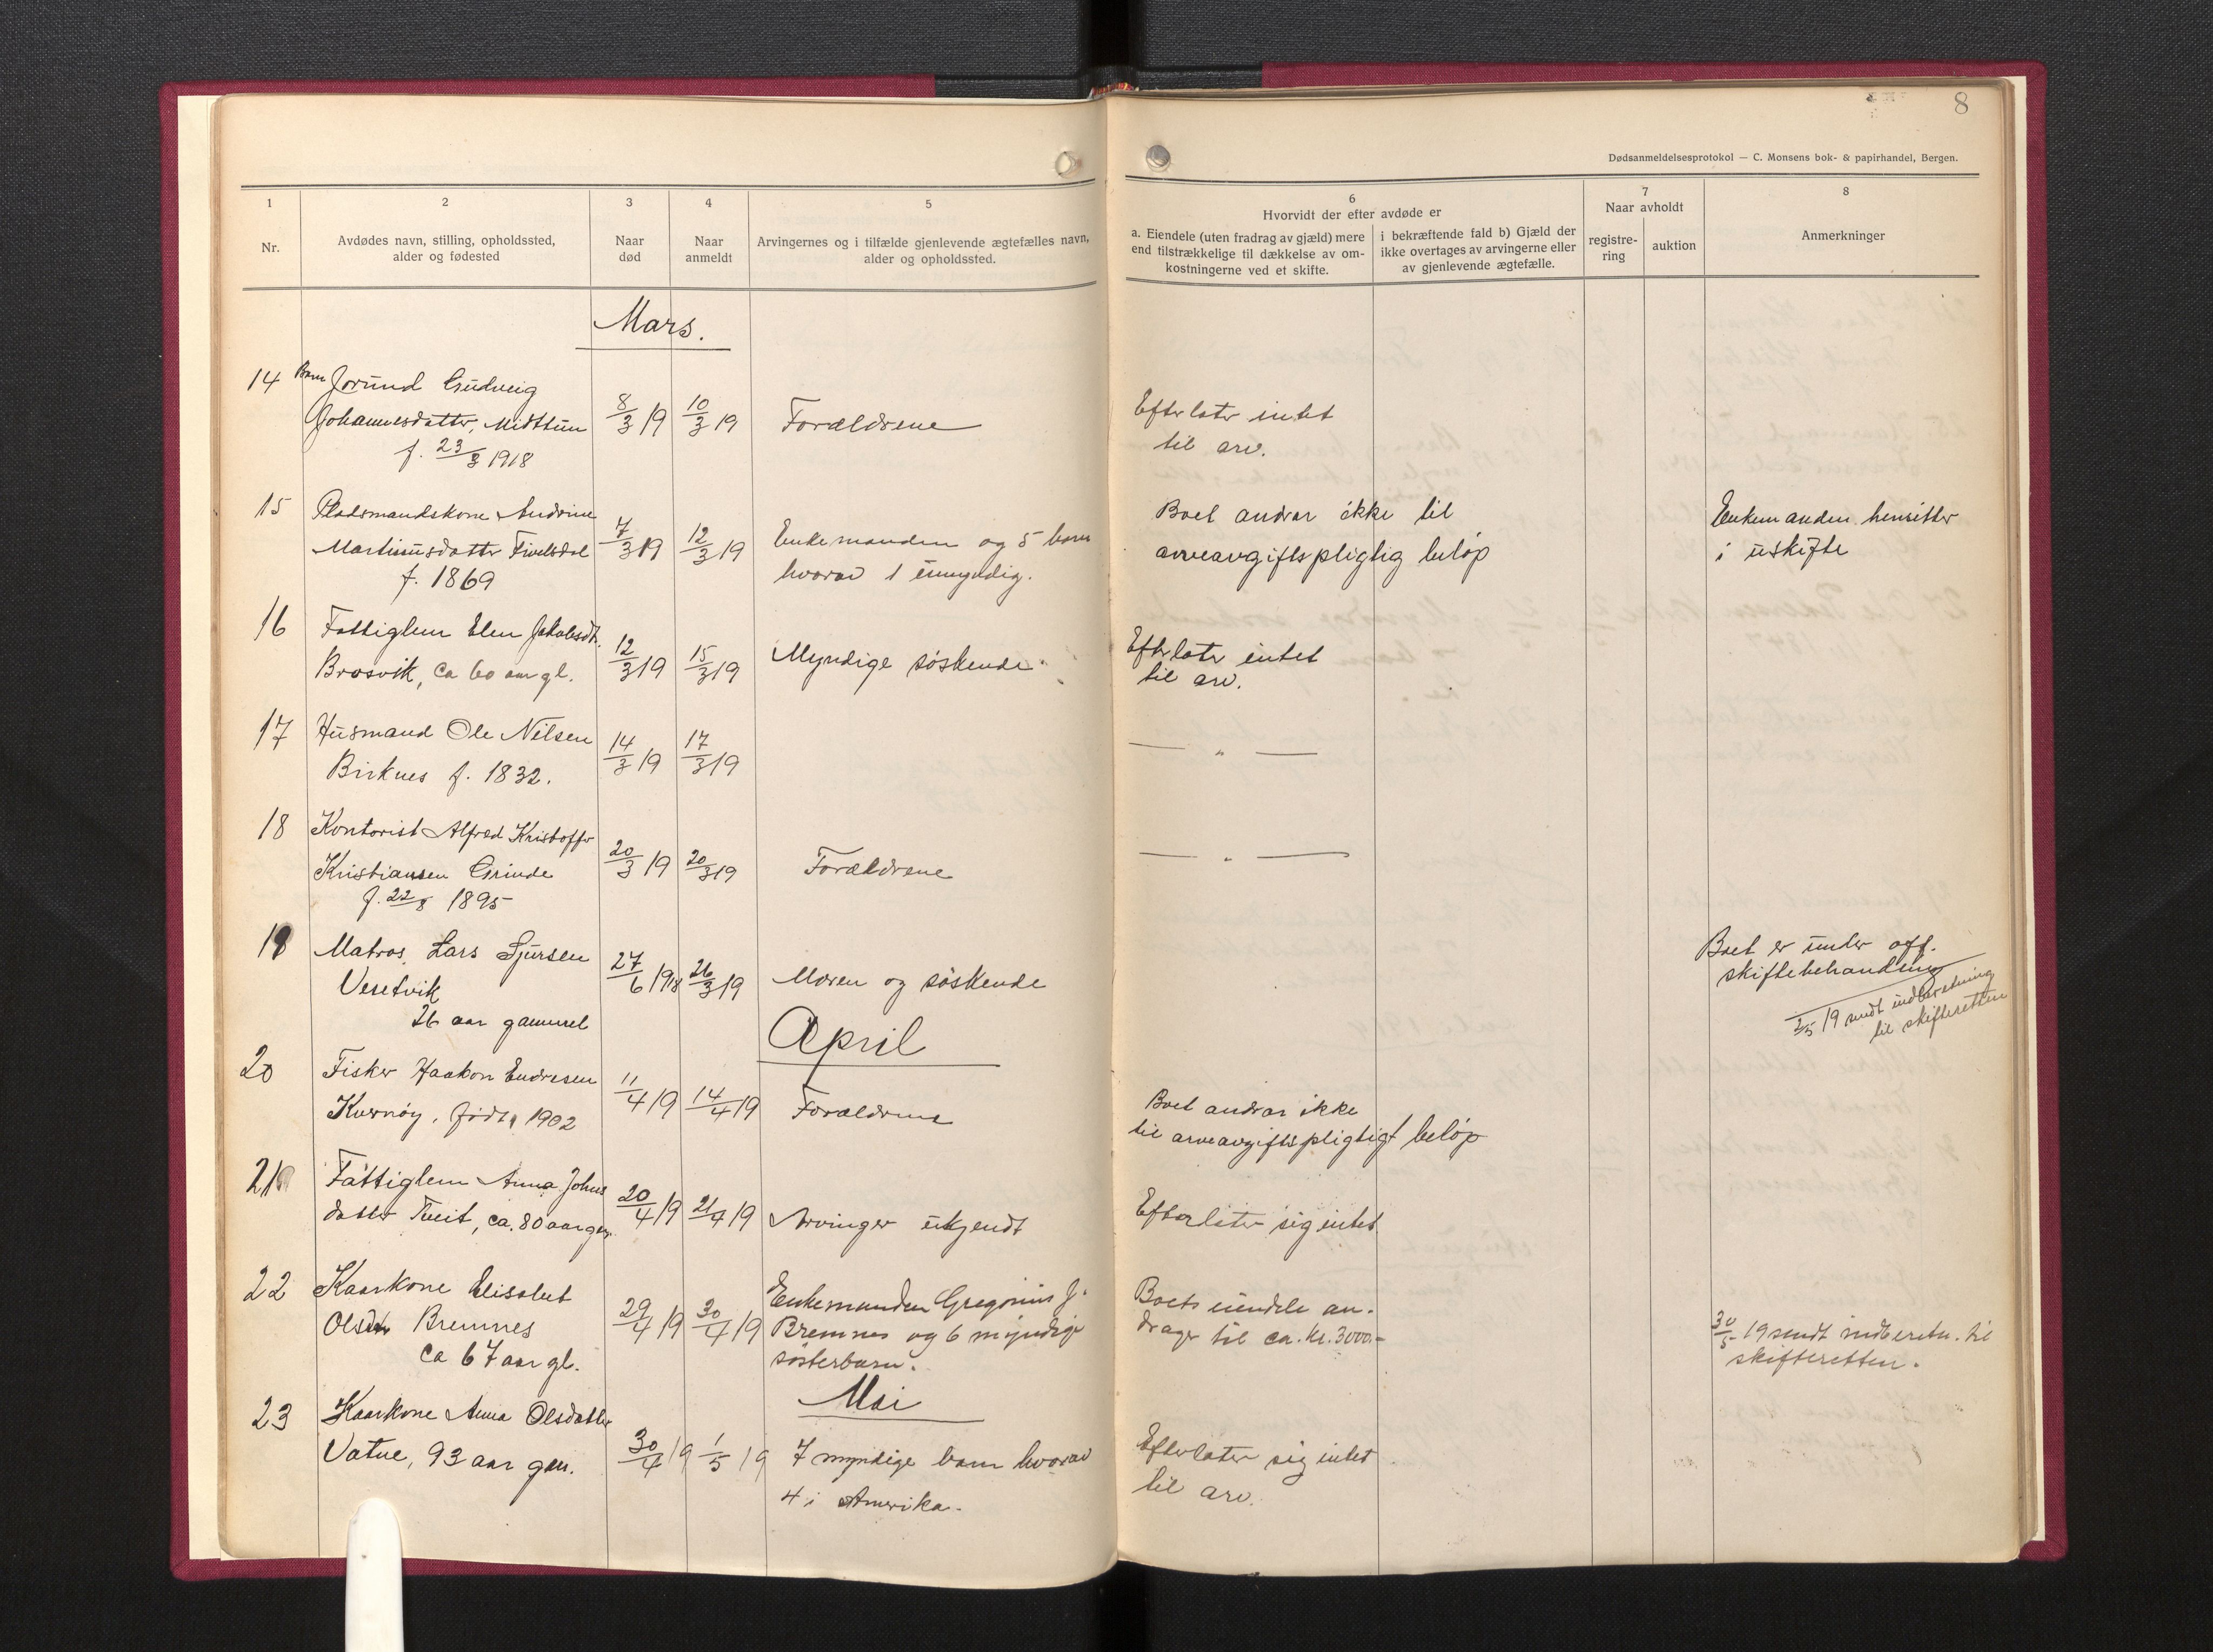 8
Dødsanmeldelsesprotokol — C. Monsens bok- & papirhandel, Bergen.
1
2
3
4
5
6
7
8
Nr.
Avdødes navn, stilling, opholdssted,
alder og fødested
Naar
død
Naar
anmeldt
Arvingernes og i tilfælde gjenlevende ægtefælles navn,
alder og opholdssted.
Hvorvidt der efter avdøde er
a. Eiendele (uten fradrag av gjæld) mere
end tilstrækkelige til dækkelse av om-
kostningerne ved et skifte.
i bekræftende fald b) Gjæld der
ikke overtages av arvingerne eller
av gjenlevende ægtefælle.
Naar avholdt
registre-
ring
auktion
Anmerkninger
Mars.
14 Barn Jorund Gudveig
Johannesdatter, Midttun
f. 23/3 1918
8/3 19
10/3 19
Forældrene
Efterlater intet
til arv.
15 Pladsmandskone Andrine
Martinusdatter Fivelsdal
f. 1869
7/3 19
12/3 19
Enkemanden og 5 barn
hvorav 1 umyndig.
Boet andrar ikke til
arveavgiftspligtig beløp
Enkemanden hensitter
i uskifte
16 Fattiglem Elen Jakobsdt.
Brosvik, ca 60 aar gl.
12/3 19
15/3 19
Myndige søskende.
Efterlater intet
til arv.
17 Husmand Ole Nilsen
Birknes f. 1832.
14/3 19
17/3 19
— " —
18 Kontorist Alfred Kristoffer
Kristiansen Grinde
f. 22/8 1895
20/3 19
20/3 19
Forældrene
— " —
19 Matros Lars Sjursen
Vesetvik
26 aar gammel
27/6 1918
26/3 19
Moren og søskende
Boet er under off.
skiftebehandling
2/5 19 sendt indberetning
til skifteretten
April
20 Fisker Haakon Endresen
Kvernøy, født 1902
11/4 19
14/4 19
Forældrene
Boet andrar ikke
til arveavgiftspligtigt beløp
21 Fattiglem Anna Johns
datter Tveit, ca. 80 aar gm.
20/4 19
21/4 19
Arvinger ukjendt
Efterlater sig intet
22 Kaarkone Elisabet
Olsdtr Bremnes
ca 67 aar gl.
29/4 19
30/4 19
Enkemanden Gregorius J.
Bremnes og 6 myndige
søsterbarn.
Boets eiendele an-
drager til ca. kr. 3000.-
30/5 19 sendt indberetn. til
skifteretten.
Mai
23 Kaarkone Anna Olsdatter
Vatne, 93 aar gm.
30/4 19
1/5 19
7 myndige barn hvorav
4 i Amerika.
Efterlater sig intet
til arv.